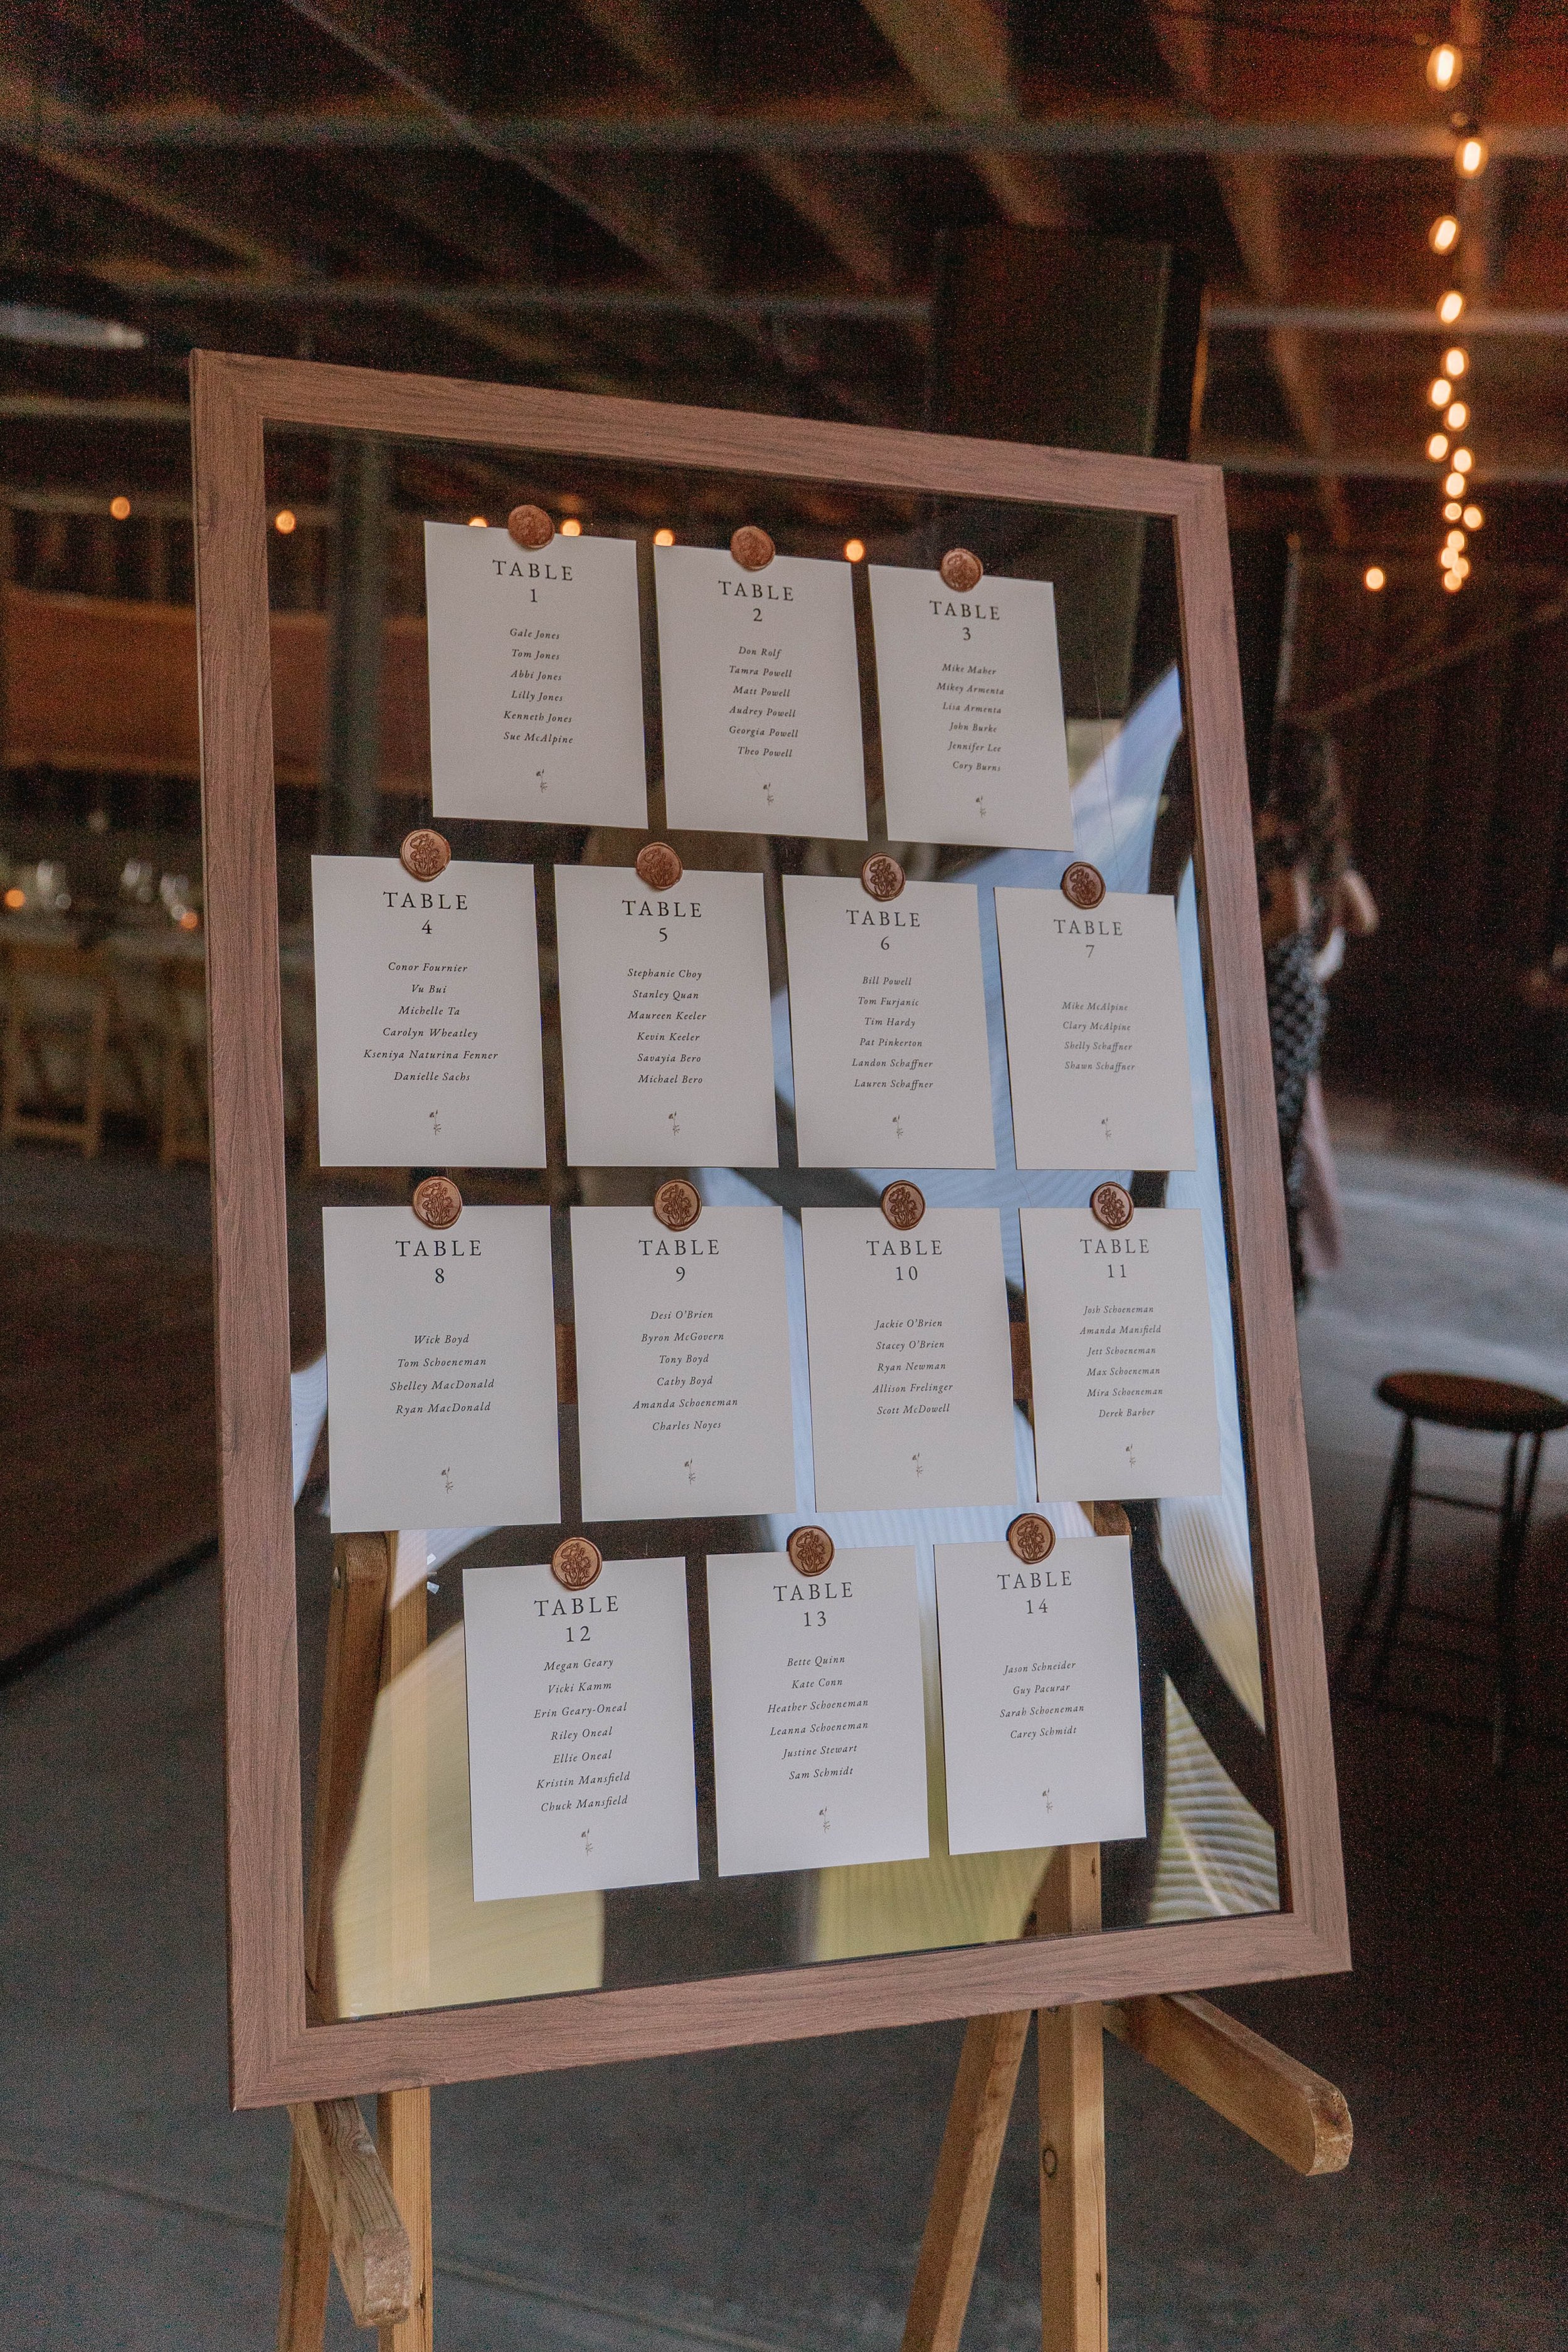 TABLE
1
Gale Jones
Tom Jones
Abbi Jones
Lilly Jones
Kenneth Jones
Sue McAlpine
TABLE
2
Don Rolf
Tamra Powell
Matt Powell
Audrey Powell
Georgia Powell
Theo Powell
TABLE
3
Mike Maher
Mikey Armenta
Lisa Armenta
John Burke
Jennifer Lee
Cory Burns
TABLE
4
Conor Fournier
Vu Bui
Michelle Ta
Carolyn Wheatley
Kseniya Naturina Fenner
Danielle Sachs
TABLE
5
Stephanie Choy
Stanley Quan
Maureen Keeler
Kevin Keeler
Savayia Bero
Michael Bero
TABLE
6
Bill Powell
Tom Furjanic
Tim Hardy
Pat Pinkerton
Landon Schaffner
Lauren Schaffner
TABLE
7
Mike McAlpine
Clary McAlpine
Shelly Schaffner
Shawn Schaffner
TABLE
8
Wick Boyd
Tom Schoeneman
Shelley MacDonald
Ryan MacDonald
TABLE
9
Desi O'Brien
Byron McGovern
Tony Boyd
Cathy Boyd
Amanda Schoeneman
Charles Noyes
TABLE
10
Jackie O'Brien
Stacey O'Brien
Ryan Newman
Allison Frelinger
Scott McDowell
TABLE
11
Josh Schoeneman
Amanda Mansfield
Jett Schoeneman
Max Schoeneman
Mira Schoeneman
Derek Barber
TABLE
12
Megan Geary
Vicki Kamm
Erin Geary-Oneal
Riley Oneal
Ellie Oneal
Kristin Mansfield
Chuck Mansfield
TABLE
13
Bette Quinn
Kate Conn
Heather Schoeneman
Leanna Schoeneman
Justine Stewart
Sam Schmidt
TABLE
14
Jason Schneider
Guy Pacurar
Sarah Schoeneman
Carey Schmidt